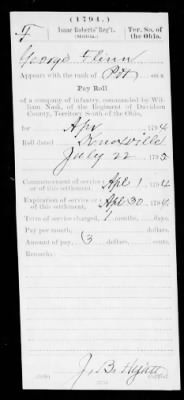 (1794.)
F
Isaac Roberts' Reg't
(Militia.)
Ter. So. of
the Ohio.
George Flinn
Appears with the rank of Pvt on a
Pay Roll
of a company of infantry, commanded by Wil-
liam Nash, of the Regiment of Davidson
County, Territory South of the Ohio,
for Apr, 1794
Roll dated Knoxville
July 22, 179
Commencement of service
of this settlement, Apl 1, 1794
Expiration of service
of this settlement, Apl 30, 1794
Term of service charged, 1 months, days.
Pay per month, dollars, cents.
Amount of pay, 3 dollars, cents.
Remarks:
J. B. Hyatt
Copyist.